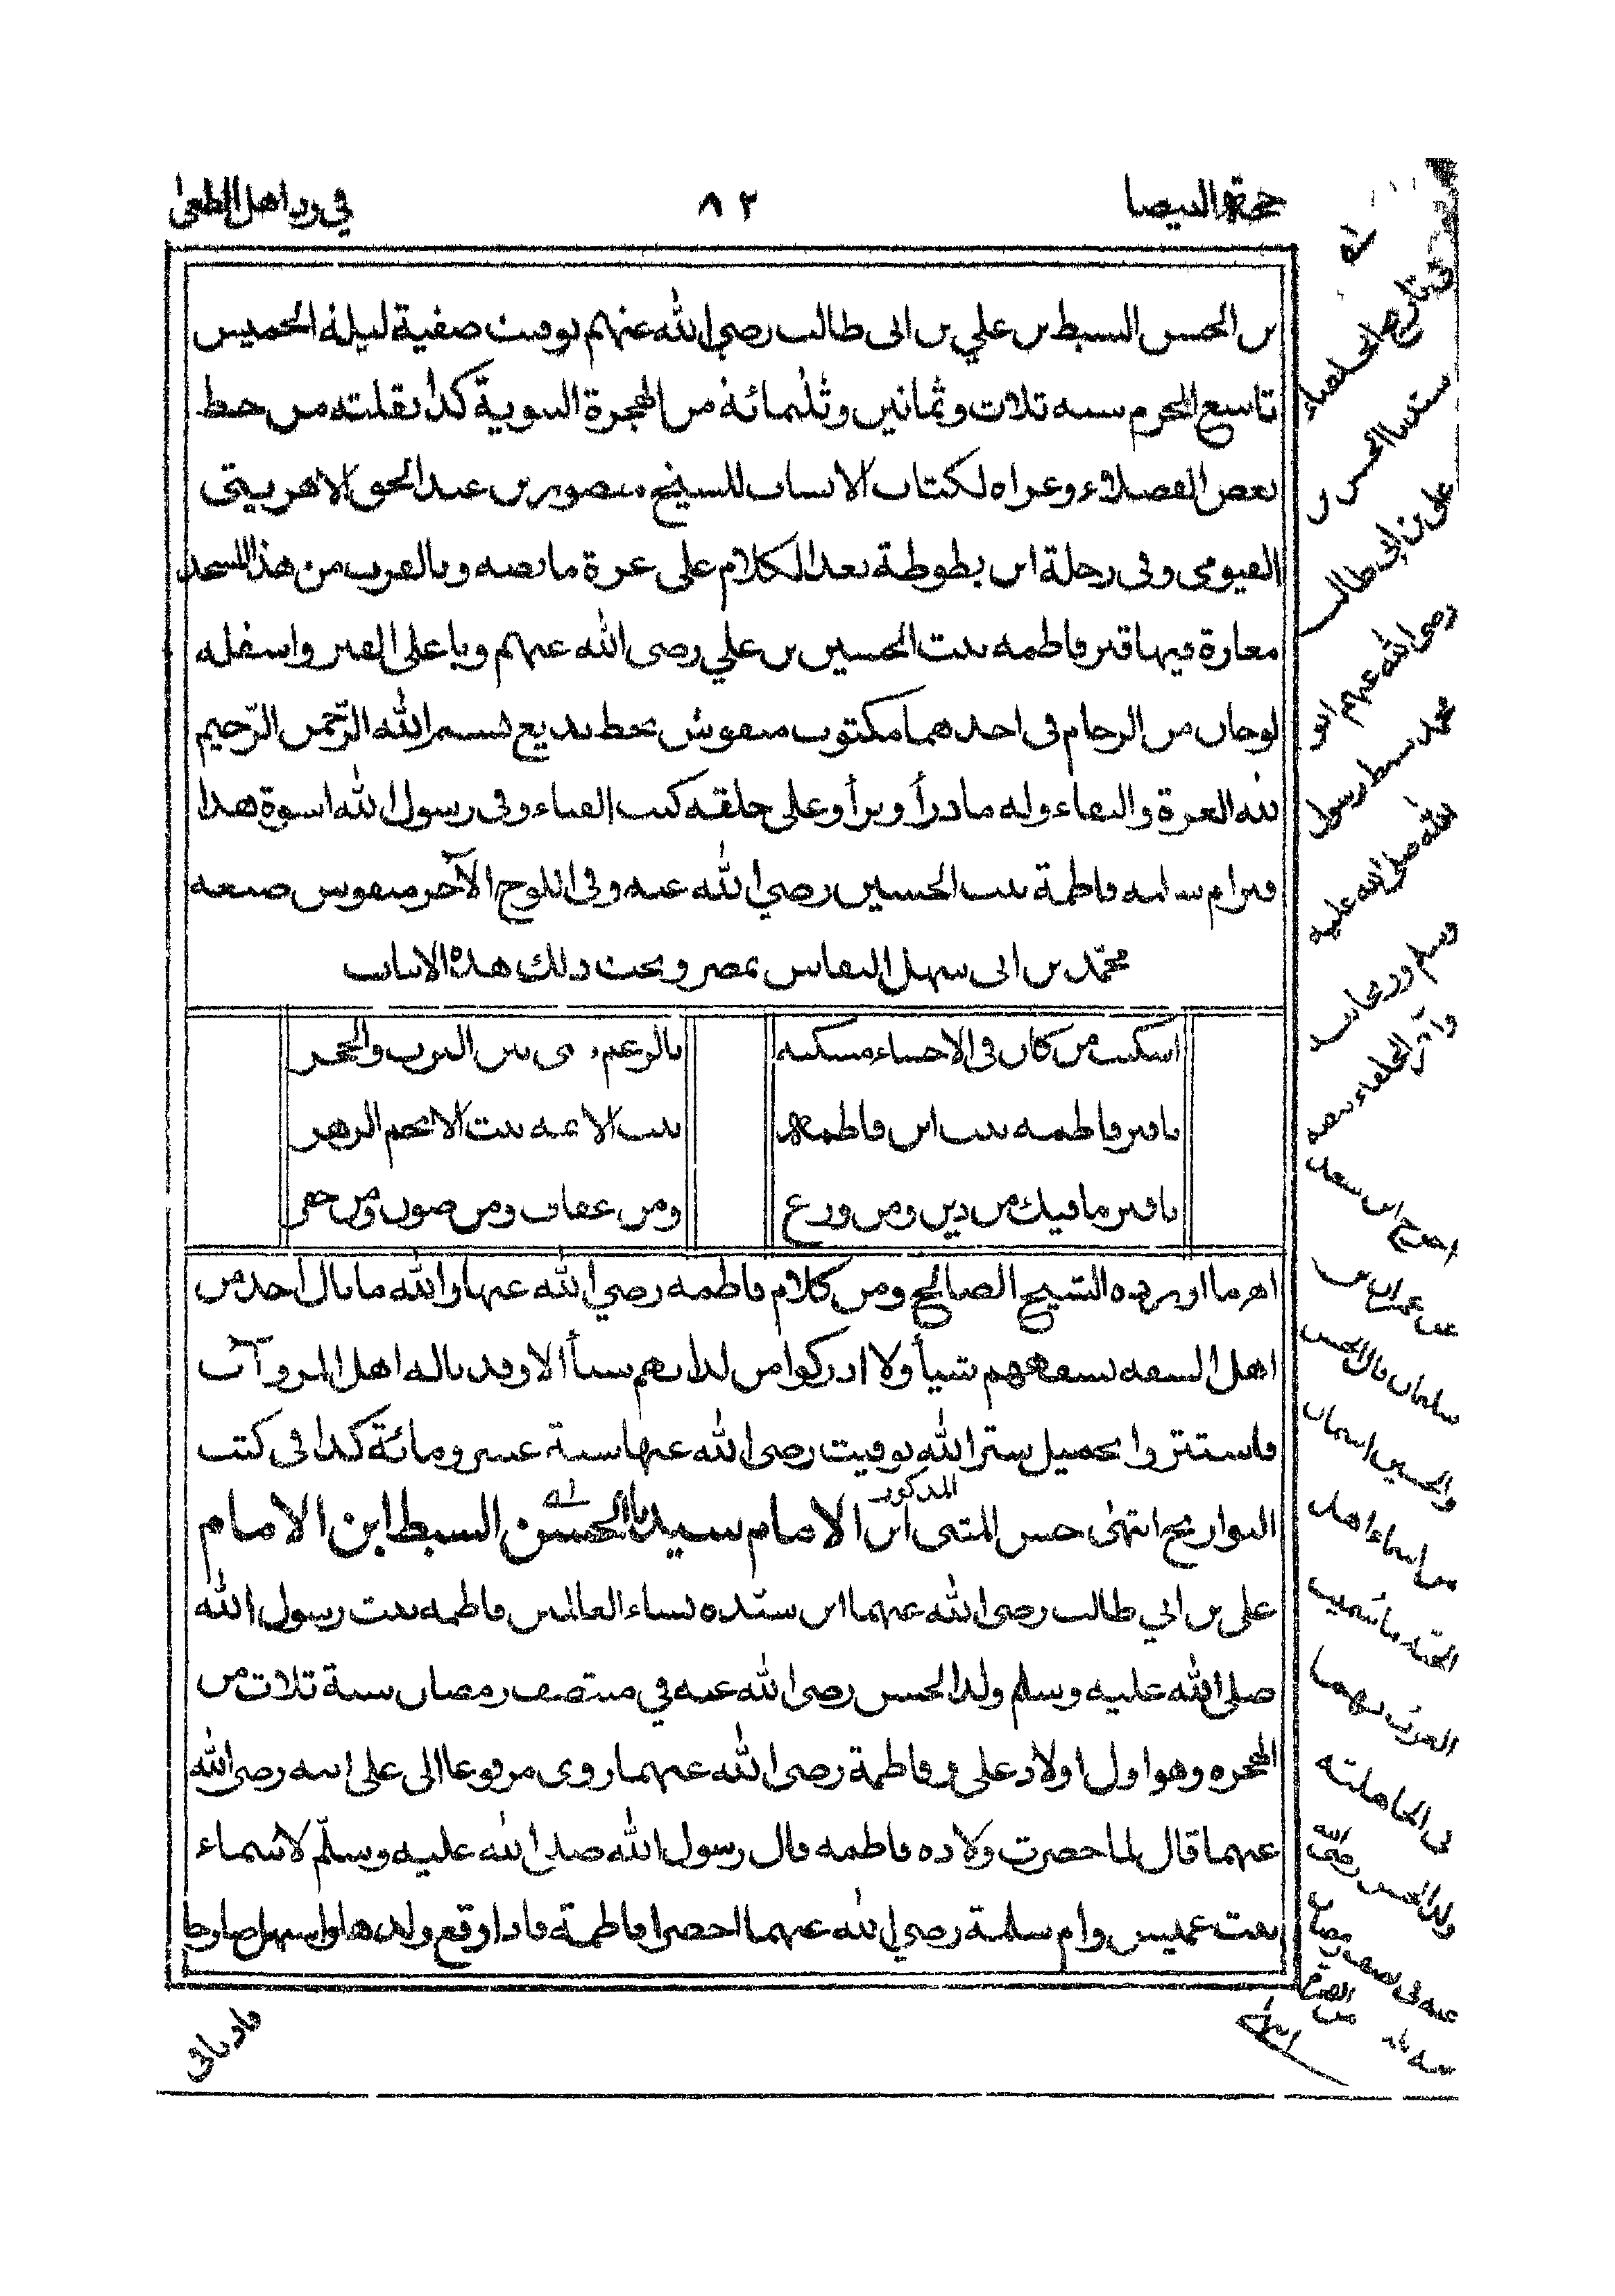 حجة البيضا
٨٢
في رد اهل الطغى
بن الحسن السبط بن علي بن ابى طالب رضي الله عنهم توفيت صفية ليلة الخميس
تاسع المحرم سنه ثلاث وثمانين وثلثمائة من الهجرة النبوية كذا نقلته من خط
بعض الفضلاء وعزاه لكتاب الانساب للشيخ منصور بن عبد الحق الاهريتى
الفيومى وفى رحلة ابن بطوطة بعد الكلام على غزة ما نصه وبالقرب من هذا المسجد
مغارة فيها قبر فاطمه بنت الحسين بن علي رضى الله عنهم وباعلى القبر واسفله
لوحان من الرخام فى احدهما مكتوب منقوش بخط بديع بسم الله الرحمن الرحيم
لله العزة والبقاء وله ما ذرأ وبرأ وعلى خلقه كتب الفناء وفى رسول الله اسوة هذا
قبر ام سلمه فاطمة بنت الحسين رضي الله عنه وفى اللوح الآخر منقوش صنعه
محمد بن ابى سهل النقاش بمصر وتحت ذلك هذه الابيات
اسكنت من كان فى الاحشاء مسكنه بالرغم منى بين الترب والحجر
يا قبر فاطمه بنت ابن فاطمة بنت الائمه بنت الانجم الزهر
يا قبر ما فيك من دين ومن ورع ومن عفاف ومن صون ومن خفر
اهـ ما اورده الشيخ الصالح ومن كلام فاطمه رضي الله عنها والله ما نال احد من
اهل السفه بسفههم شيأ ولا ادركوا من لذاتهم شيأ الا وقد ناله اهل المروآت
فاستتروا بجميل ستر الله توفيت رضى الله عنها سنة عشر ومائة كذا فى كتب
التواريخ انتهى حسن المثنى المذكور ابن الامام سيدنا الحسن السبط ابن الامام
على بن ابي طالب رضى الله عنهما ابن سيده نساء العالمين فاطمه بنت رسول الله
صلى الله عليه وسلم ولد الحسن رضى الله عنه في منتصف رمضان سنة ثلاث من
الهجره وهو اول اولاد على وفاطمة رضى الله عنهما روى مرفوعا الى على ابنه رضى الله
عنهما قال لما حضرت ولاده فاطمه قال رسول الله صلى الله عليه وسلم لاسماء
بنت عميس وام سلمة رضي الله عنهما احضرا فاطمة فاذا وقع ولدها واستهل صارخا
فاذنا فى
فى تاريخ الخلفاء
سيدنا الحسن بن
على بن ابى طالب
رضى الله عنهم ابو
محمد سبط رسول
الله صلى الله عليه
وسلم وريحانته
وآخر الخلفاء بنصه
اخرج ابن سعد
عن عمران بن
سليمان قال الحسن
والحسين اسمان
من اسماء اهل
الجنة ما سميت
العرب بهما
فى الجاهلية
ولد الحسن رضى الله
عنه فى نصف رمضان
سنة ثلاث من الهجرة